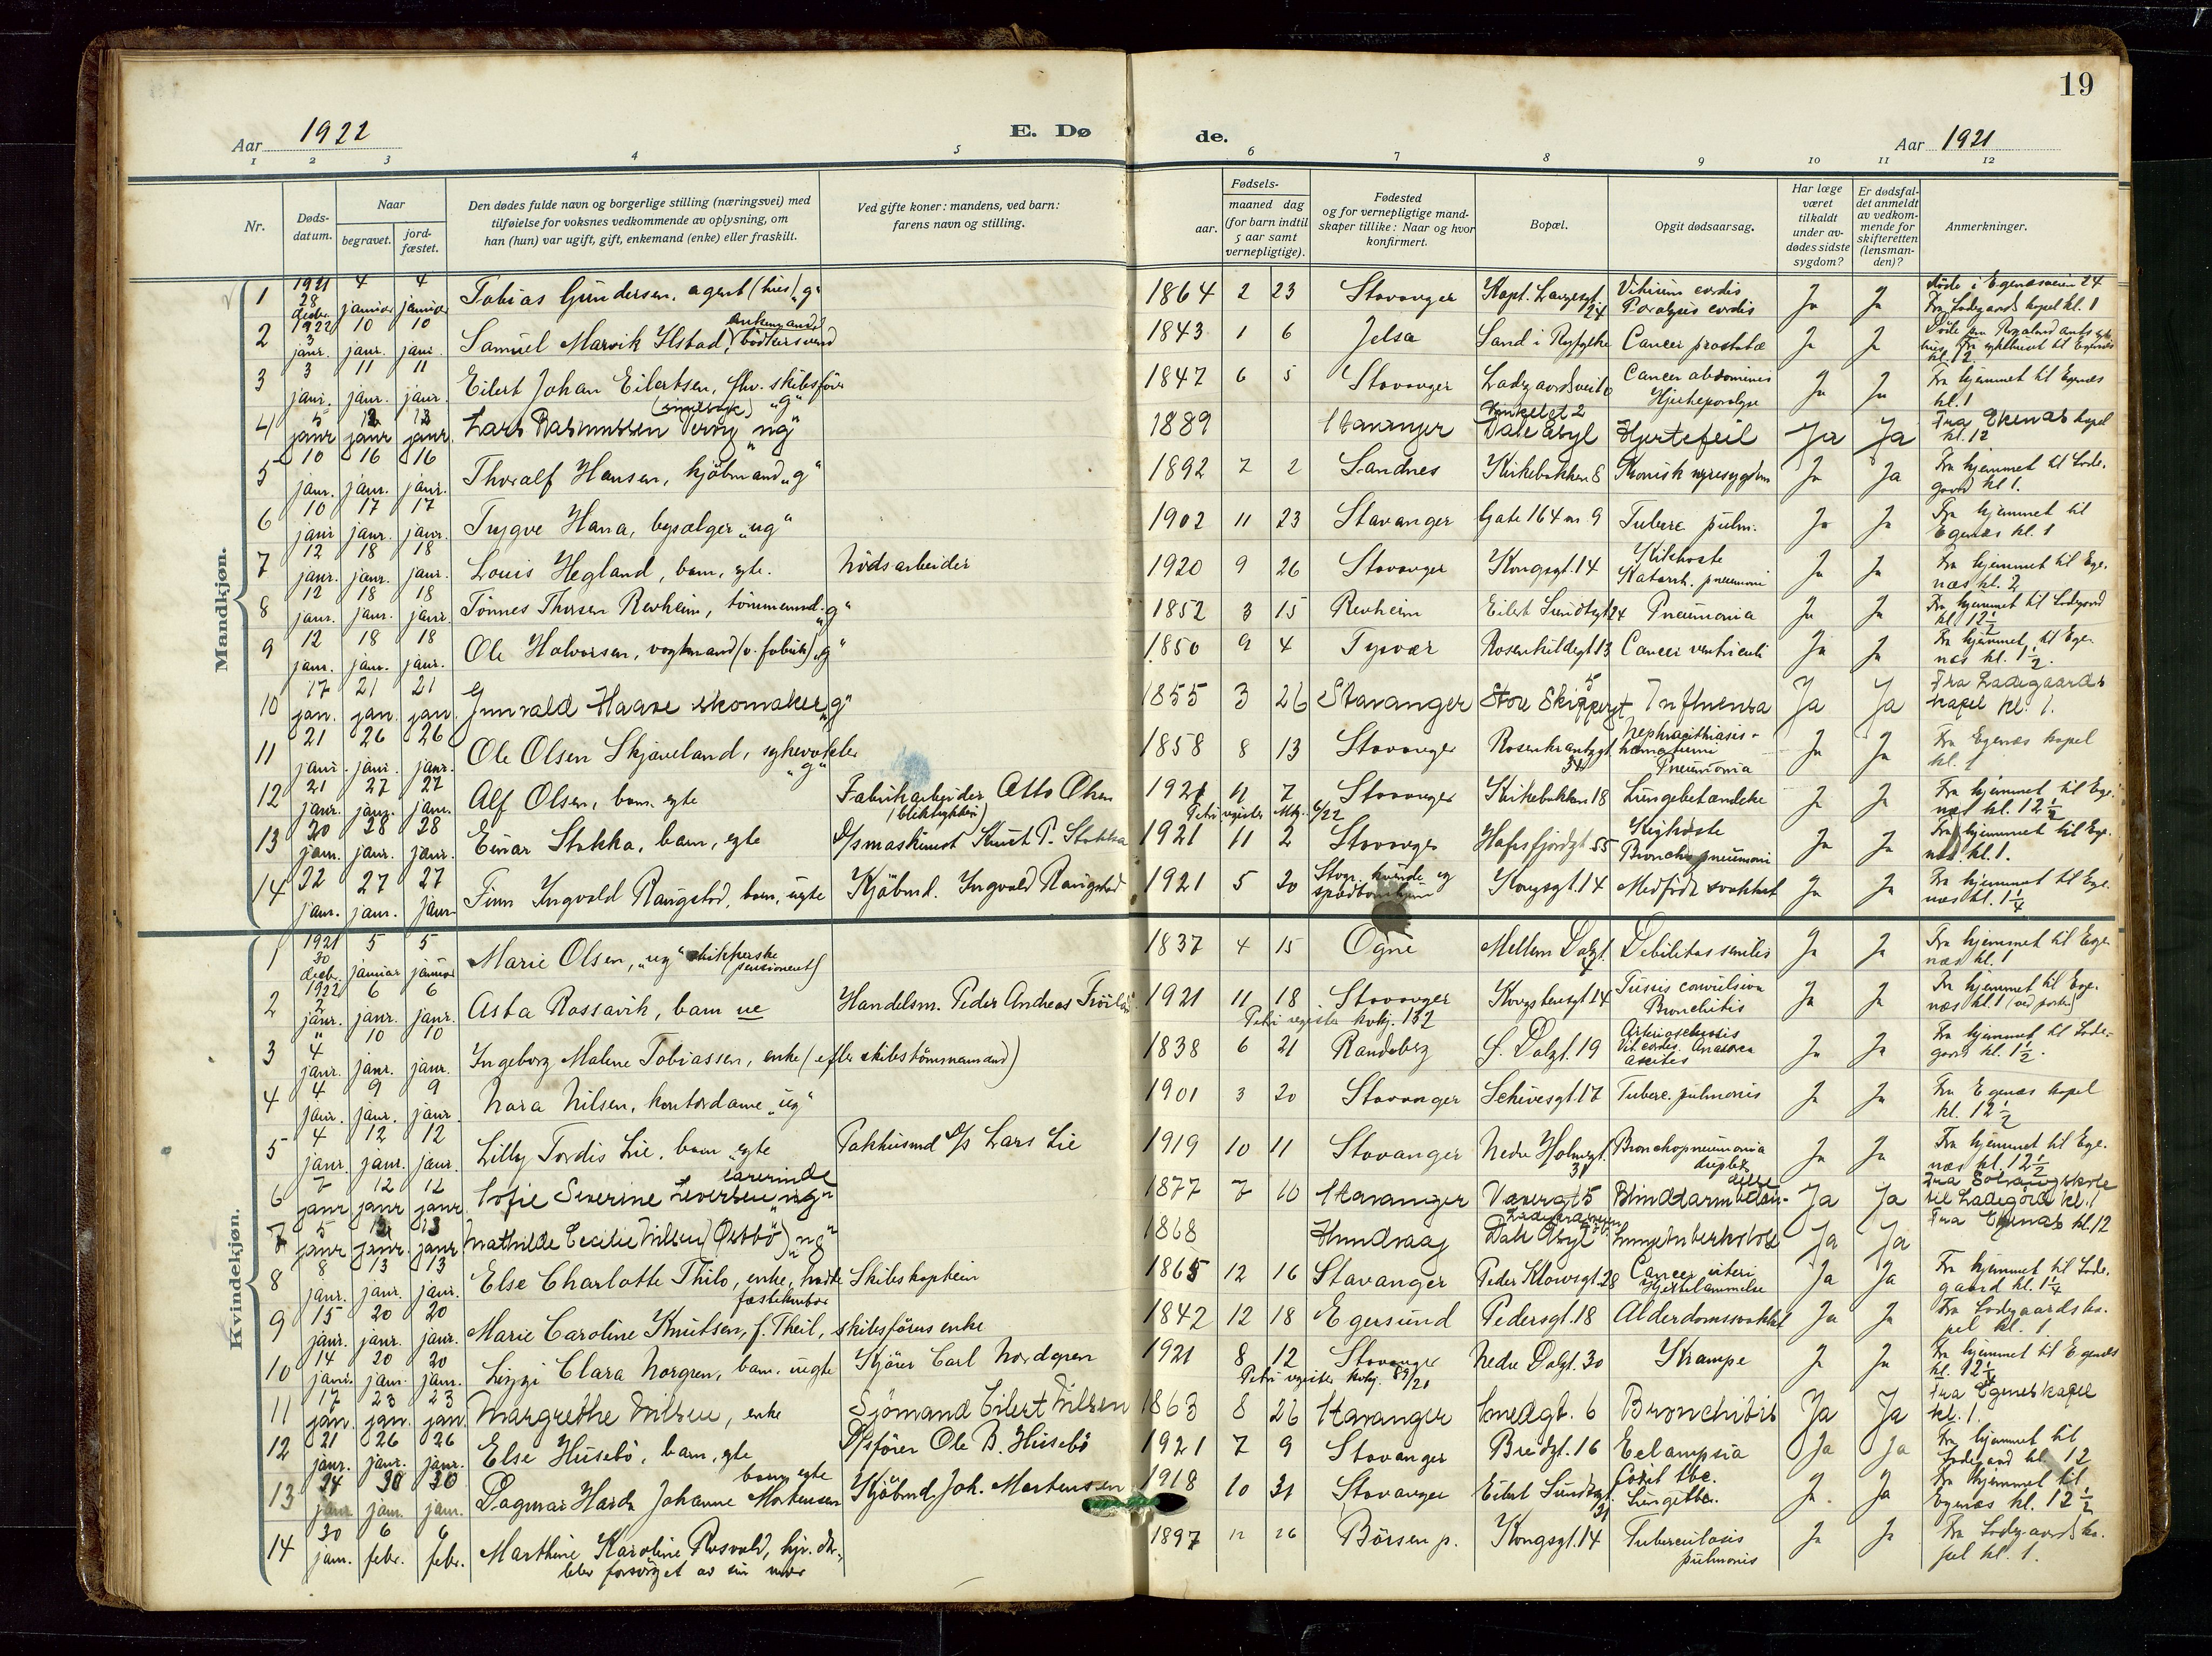 19
Aar 1922
E. Dø
de.
Aar 1921
1 2 3 4 5 6 7 8 9 10 11 12
Nr.
Døds-datum.
Naar
begravet.
jord-fæstet.
Den dødes fulde navn og borgerlige stilling (næringsvei) med
tilføielse for voksnes vedkommende av oplysning, om
han (hun) var ugift, gift, enkemand (enke) eller fraskilt.
Ved gifte koner: mandens, ved barn:
farens navn og stilling.
Fødsels-
aar.
maaned dag
(for barn indtil
5 aar samt
vernepligtige).
Fødested
og for vernepligtige mand-
skaper tillike: Naar og hvor
konfirmert.
Bopæl.
Opgit dødsaarsag.
Har læge
været
tilkaldt
under av-
dødes sidste
sygdom?
Er dødsfal-
det anmeldt
av vedkom-
mende for
skifteretten
(lensman-
den)?
Anmerkninger.
Mandkjøn.
1 1921 28 decbr. 4 januar 4 januar Tobias Gundersen, agent „g“ 1864 2 23 Stavanger Kapt. Langesgt. 24 Vitium cordis Paralysis cordis Ja Ja døde i Egenæsveien 24 Fra Ladegaards kapel kl. 1
2 1922 3 janr. 10 janr. 10 janr. Samuel Marvik Ilstad, enkemand bødkersvend 1843 1 6 Jelsa Sand i Ryfylke Cancer prostatæ Ja Ja
3 3 janr. 11 janr. 11 janr. Eilert Johan Eilertsen, fhv. skibsfører „g“ 1847 6 5 Stavanger Cancer abdominis Hjerteparalyse Ja Ja Fra hjemmet til Egenæs kl. 1
4 5 janr 12 janr 12 janr. Lars Rasmussen (sindssyk) „ug“ 1889 Stavanger Dale Asyl Hjertefeil Ja Ja Fra Ekenæs kapel kl. 12
5 10 janr. 16 janr. 16 janr. Thoralf Hansen, kjøbmand „g“ 1892 7 2 Sandnes Kirkebakken 8 Kronisk nyresygdom Ja Ja Fra hjemmet til Lade-gaard kl 1.
6 10 janr 17 janr. 17 janr. Trygve Hana, bysælger „ug“ 1902 11 23 Stavanger Gate 164 nr 9 Tuberc pulm. Ja Ja Fra hjemmet til Egenæs kl. 1
7 12 janr. 18 janr. 18 janr. Louis Hegland, barn, egte. Nødsarbeider 1920 9 26 Stavanger Kongsgt. 14 Kikhoste Katarrh. pneumoni Ja Ja Fra hjemmet til Ege-næs kl. 2
8 12 janr. 18 janr. 18 janr. Tønnes Thorsen Revheim, tømmermd. „g“ 1852 3 15 Revheim Eilert Sundtsgt 24 Pneumonia Ja Ja Fra hjemmet til Ladegaard kl 12½
9 12 janr. 18 janr. 18 janr. Ole Halvorsen, vagtmand (v. fabrik) „g“ 1850 9 4 Tysvær Rosenkildegt 13 Cancer ventriculi Ja Ja Fra hjemmet til Ege-næs kl. 1½.
10 17 jan. 21 jan. 21 jan. Gunvald Haave skomaker „g“ 1855 3 26 Stavanger Store Skippergt 5 Influensa Ja Ja Fra Ladegaards kapel kl. 1.
11 21 janr. 26 janr. 26 janr. Ole Olsen Skjæveland, sykevokter „g“ 1858 8 13 Stavanger Rosenkrantzgt. 34 Pneumonia Ja Ja Fra Egenæs kapel kl. 1
12 21 janr. 27 janr. 27 janr. Alf Olsen, barn, egte Fabrikarbeider Otto Olsen 1921 11 7 Stavanger Kirkebakken 18 Lungebetændelse Ja Ja Fra hjemmet til Ege-næs kl. 12½
13 20 janr. 28 janr. 28 janr. Einar Stokka, barn, egte D/smaskinist Knut P. Stokka 1921 11 2 Stavanger Hafrsfjordgt. 55 Kighoste Bronchopneumoni Ja Ja Fra hjemmet til Ege-næs kl. 1.
14 22 janr. 27 janr. 27 janr Finn Ingvald Raugstad, barn, uegte Kjøbmd. Ingvald Raugstad 1921 5 20 Stvgr. kvinde og spædbarnhjem Kongsgt. 14 Medfødt svakhet Ja Ja Fra hjemmet til Ege-næs kl. 1¼
Kvindekjøn.
1 1921 30 decbr. 5 januar 5 januar Marie Olsen, „ug“ (pensioneret) 1837 4 15 Ogne Mellem Dalgt. 4 Debilitas senilis Ja Ja Fra hjemmet til Ege-næs kl. 1
2 1922 2 janr. 6 janr. 6 janr. Asta Rossavik, barn ue Handelsm. Peder Andreas 1921 11 18 Stavanger Kongstensgt 24 Tussis convulsiva Bronchitis Ja Ja Fra hjemmet til Ege-næs kl 1
Petri register kvkj. 132
3 4 janr. 10 janr. 10 janr. Ingeborg Malene Tobiassen, enke (efter skibstømmermand) 1838 6 21 Randeberg S. Dalgt. 19 Ja Ja Fra hjemmet til Lade-gaard kl. 1½.
4 4 janr. 9 janr. 9 janr. Nora Nilsen, kontordame „ug“ 1901 3 20 Stavanger Schivesgt. 17 Tuberc. pulmonis Ja Ja Fra Egenæs kapel kl. 12½
5 4 janr. 12 janr. 12 janr. Lilly Tordis Lie, barn egte Pakhusmd D/s Lars Lie 1919 10 11 Stavanger Nedre Holmegt. 31 Bronchopneumonia duplex Ja Ja Fra hjemmet til Ege-næs kl. 12½
6 7 janr 12 janr 12 janr Sofie Severine Iversen lærerinde „ug“ 1877 7 10 Stavanger Værergt 5 Ja Ja til Ladegård kl. 1
7 5 janr 13 janr. 13 janr Mathilde Cecilie Nilsen (Østbø) „ug“ 1868 Hundvaag Dale Asyl Lungetuberkulose Ja Ja Fra Egenæs kl. 12
8 8 janr. 13 janr. 13 janr. Else Charlotte Thilo, enke, Skibskaptein 1865 12 16 Stavanger Peder Klowsgt. 28 Cancer uteri Hjertelammelse Ja Ja Fra hjemmet til Lade-gaard kl. 1¼
9 15 janr. 20 janr. 20 janr. Marie Caroline Knutsen, f. Theil, skibsførers enke 1842 12 18 Egersund Pedersgt. 18 Alderdomssvakhet Ja Ja Fra Ladegaards ka-pel kl. 1
10 14 janr. 20 janr. 20 janr. Lizzi Clara Norgren, barn, uegte Kjører Carl Nordgren 1921 8 12 Stavanger Nedre Dalgt. 30 Krampe Ja Ja Fra hjemmet til Egenæs
Petri register kvkj. 89/21
11 17 jan. 23 jan. 23 jan. Margrethe Nilsen, enke Sjømand Eilert Nilsen 1863 8 26 Stavanger Smedgt. 6 Bronchitis Ja Ja Fra Egenes kapel kl. 1.
12 21 janr. 26 janr. 26 janr. Else Husebø, barn, egte D/sfører Ole B. Husebø 1921 7 9 Stavanger Bredgt. 16 Eclampsia Ja Ja Fra hjemmet til Ladegaard kl. 12
13 24 janr. 30 janr. 30 janr. Dagmar Johanne Mortensen barn, egte Kjøbmd. Joh. Mortensen 1918 10 31 Stavanger Eilert Sundtsgt. 31 Coxit tbc. Lungetbc. Ja Ja Fra hjemmet til Egenæs kl. 12½
14 30 janr. 6 febr. 6 febr. Marthine Karoline Rosvald, blev forsørget av sin mor 1897 12 26 Børsen p. Kongsgt. 14 Tuberculosis pulmonis Ja Ja Fra Ladegaards ka-pel kl. 1.